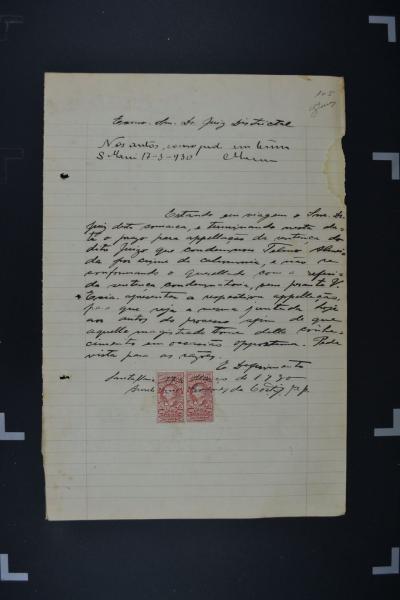 105
Exmo. Snr. Dr. Juiz Districtal
Nos autos, como pede em termo
S. Maria 17-3-930
Estando em viagem o Snr. Dr.
Juiz desta comarca, e terminando nesta da-
ta o prazo para appellação da sentença do
dito Juizo que condemnou Telmo Almei-
da por crime de calumnia, e não se
conformando o Querellado com a referi-
da sentença condemnatoria, vem perante V.
Excia. apresentar a respectiva appellação,
para que seja a mesma juntada hoje
aos autos do processo afim de que
aquelle magistrado tome della conhe-
cimento em occasião opportuna. Pede
vista para as razões.
E. Deferimento
Santa Maria 17 de Março de 1930
da Costa, p.p.